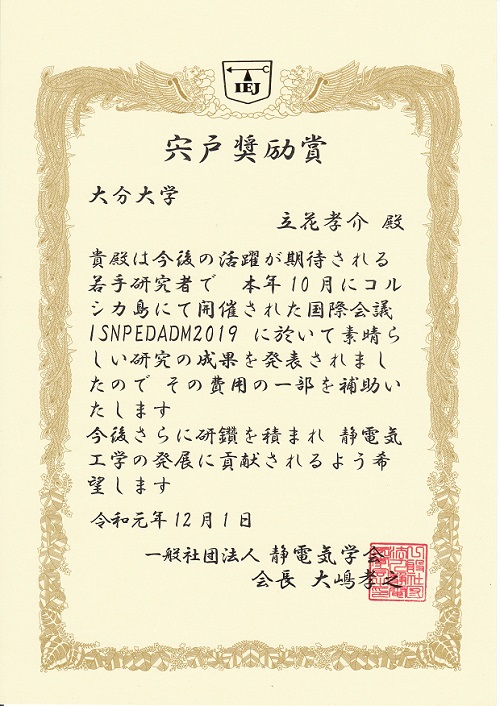 IEJ
宍戸奨励賞
大分大学
立花孝介 殿
貴殿は今後の活躍が期待される
若手研究者で 本年10月にコル
シカ島にて開催された国際会議
ISNPEDADM2019 に於いて素晴ら
しい研究の成果を発表されまし
たので その費用の一部を補助い
たします
今後さらに研鑽を積まれ 静電気
工学の発展に貢献されるよう希
望します
令和元年12月1日
一般社団法人 静電気学会
会長 大嶋孝之